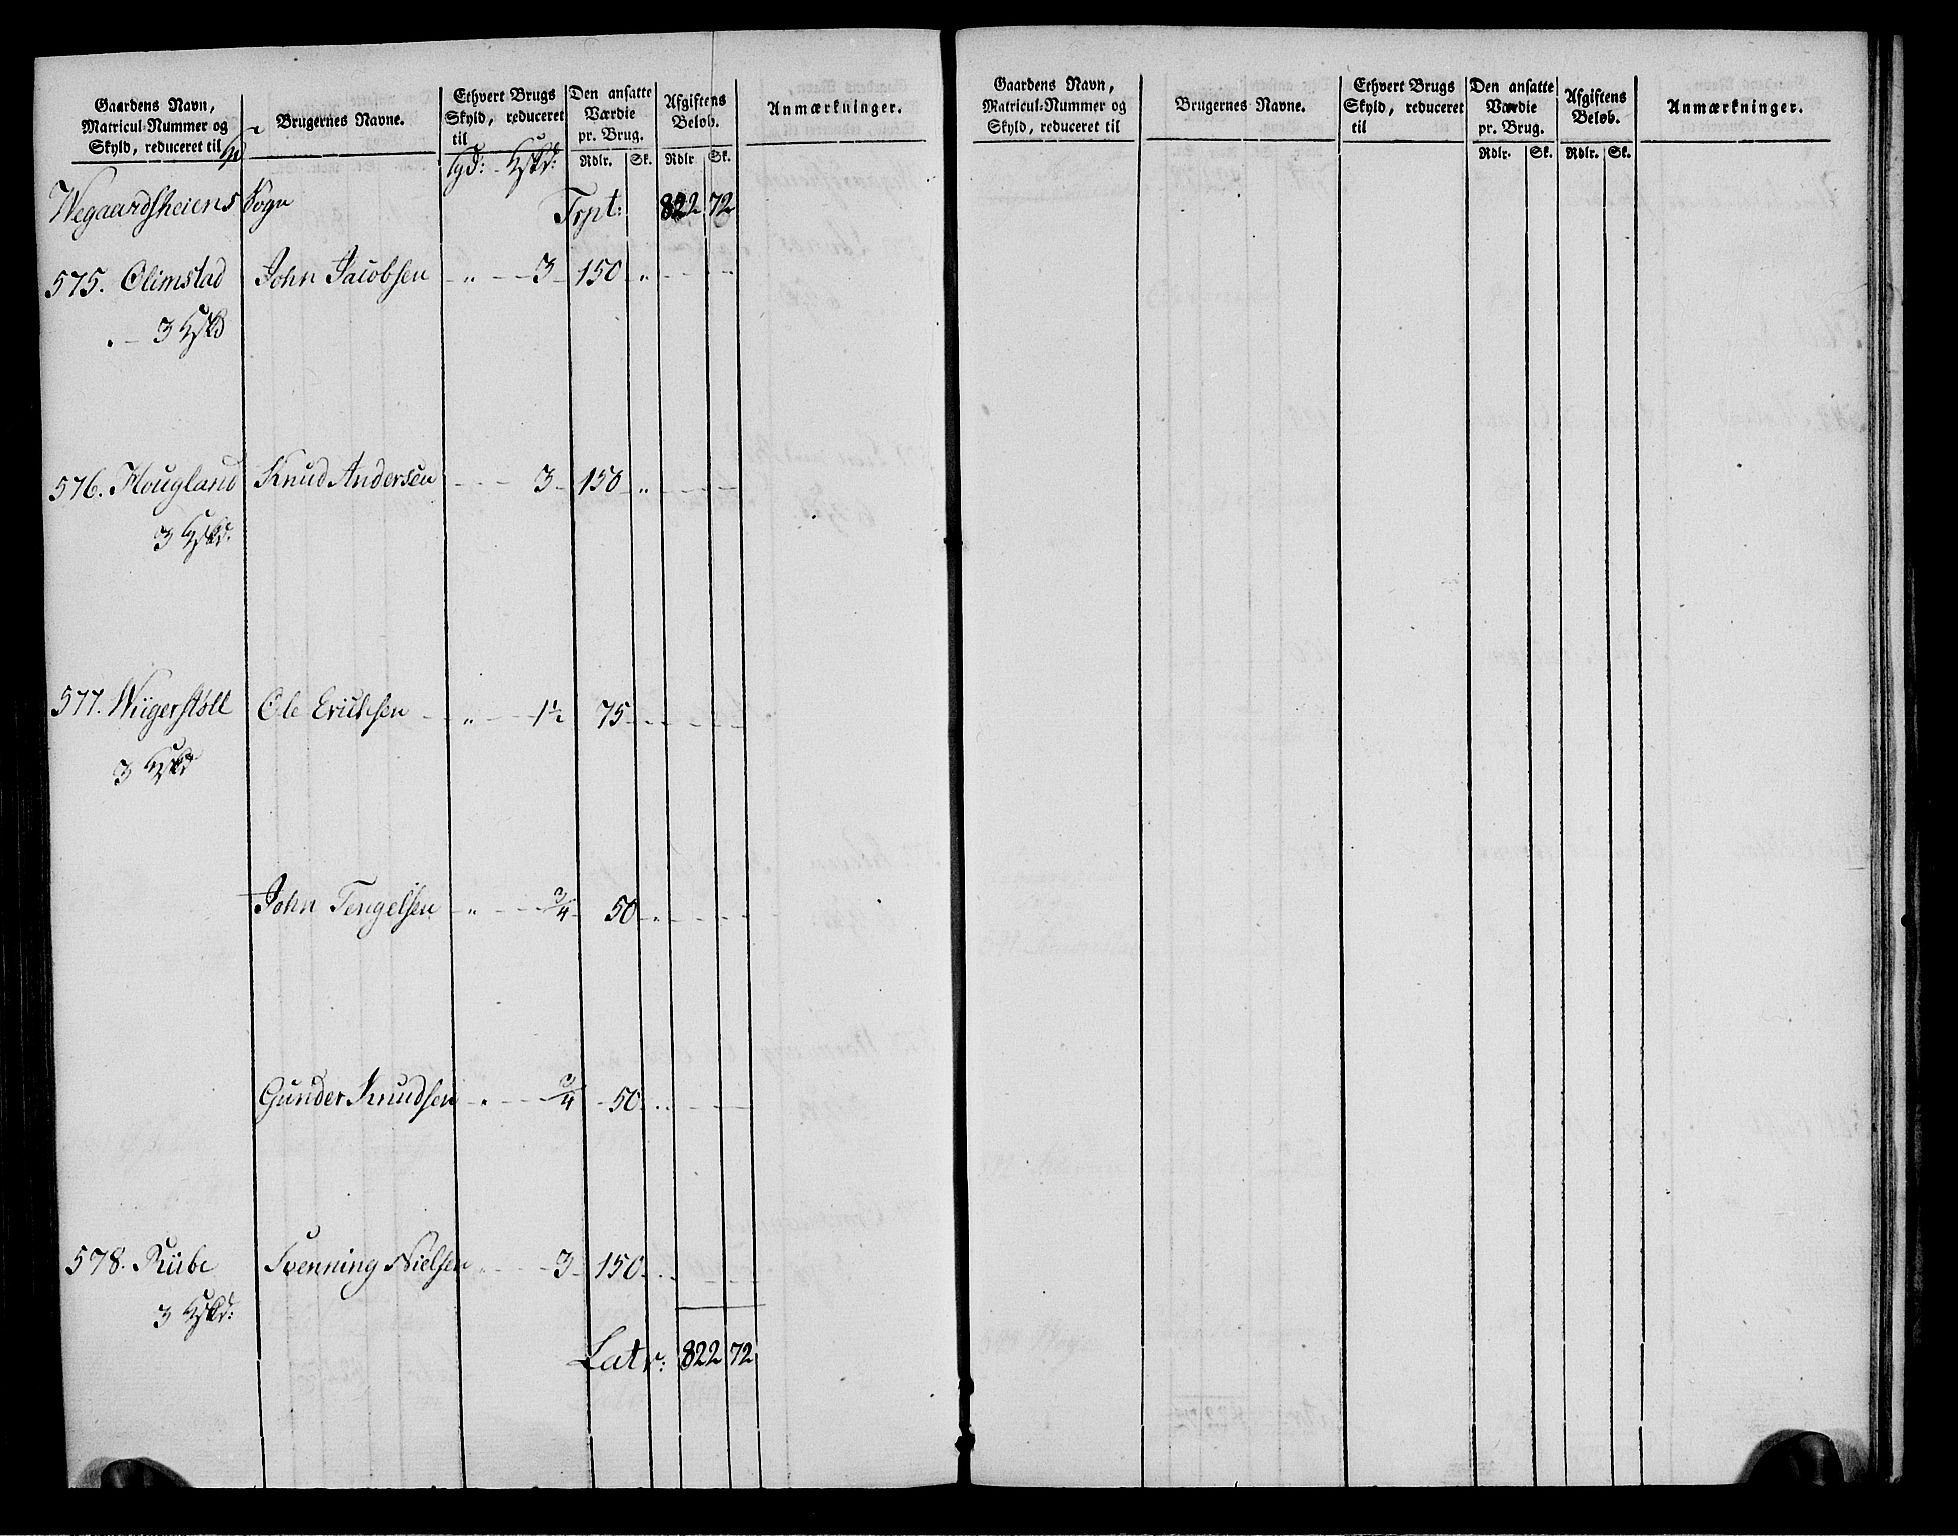 Gaardens Navn, Matricul-Nummer og Skyld, reduceret til
Brugernes Navne.
Ethvert Brugs Skyld, reduceret til
Den ansatte Værdie pr. Brug.
Afgiftens Beløb.
Anmærkninger.
Rdlr. Sk. Rdlr. Sk.
Wegaardsheiens Sogn Trpt: 822 72
575. Olimstad John Jacobsen – " – 3 – 150 "
3 Hskd
576. Hougland Knud Andersen – 3 – 150 "
3 Hskd:
577. Wiigerstøll Ole Erichsen – " – 1½ 75
3 Hskd
John Tengelsen – " – 3/4 – 50 "
Gunder Knudsen – " – 3/4 – 50
578. Riibe Svenning Nielsen " – 3 – 150
3 Hskd:
Latr: 822 72
Gaardens Navn, Matricul-Nummer og Skyld, reduceret til
Brugernes Navne.
Ethvert Brugs Skyld, reduceret til
Den ansatte Værdie pr. Brug.
Afgiftens Beløb.
Anmærkninger.
Rdlr. Sk. Rdlr. Sk.